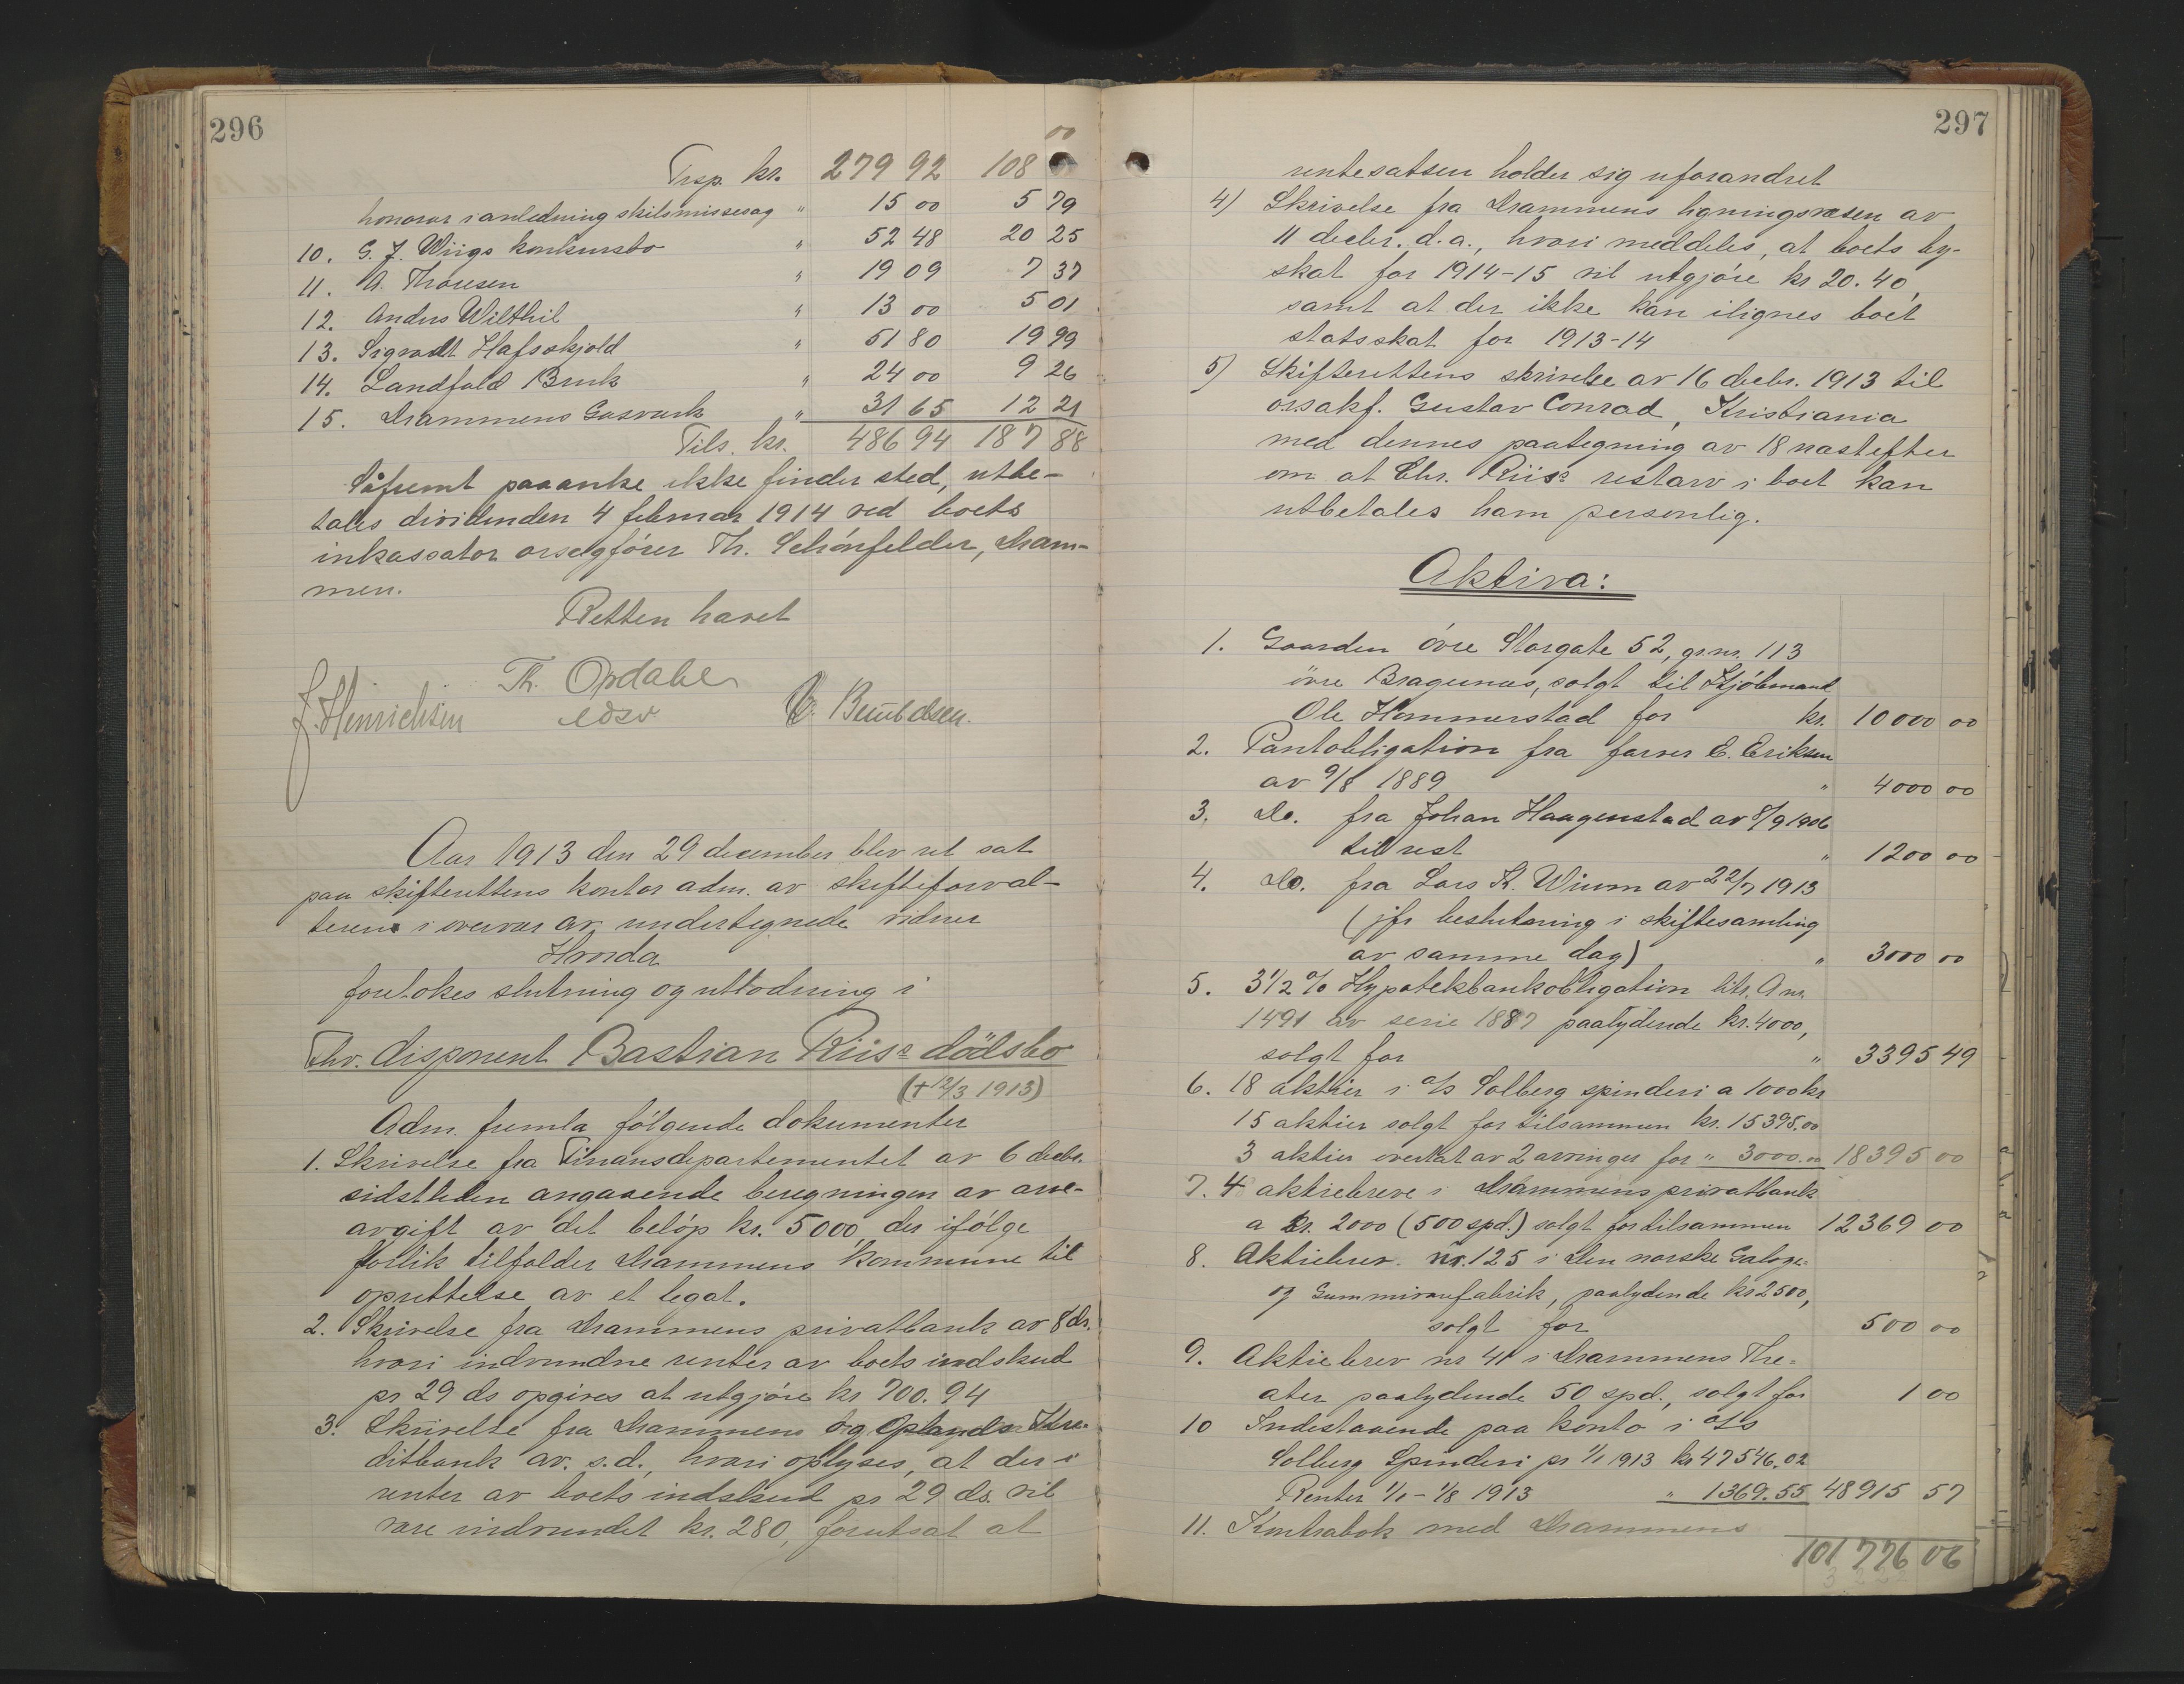 296
Trsp. kr. 279 92 108 00
honorar i anledning skilsmissesag " 15 00 5 79
10. G. J. Wiigs konkursbo " 52 48 20 25
11. A. Thoresen " 19 09 7 37
12. Anders Wilthil " 13 00 5 01
13. Sigvart Hafskjold " 51 80 19 99
14. Landfald Bruk " 24 00 9 26
15. Drammens Gasverk " 31 65 12 21
Tils. kr. 486 94 187 88
Såfremt paaanke ikke finder sted, utbe-
tales dividenden 4 februar 1914 ved boets
inkassator orsagfører Th. Schönfelder, Dram-
men.
Retten hævet
Th. Opdahl
J. Hinrichsen edsv Berntdsen.
Aar 1913 den 29 december blev ret sat
paa skifterettens kontor adm. av skifteforval-
teren i overvær av undertegnede vidner
Hvorda
foretokes slutning og utlodning i
fhv. disponent Bastian Riis's dödsbo
(+ 12/3 1913)
Adm. fremla følgende dokumenter
1. Skrivelse fra Finansdepartementet av 6 decbr.
sidstleden angaaende beregningen av arve-
avgift av det beløp kr. 5000, der ifølge
forlik tilfalder Drammens kommune til
oprettelse av et legat.
2. Skrivelse fra Drammens privatbank av 8 ds.
hvori indvundne renter av boets indskud
pr 29 ds opgives at utgjøre kr 700.94
3. Skrivelse fra Drammens og Oplands Kre-
ditbank av. s.d., hvori oplyses, at der i
renter av boets indskud pr 29 ds. vil
være indvundet kr. 280, forutsat at
297
rentesatsen holder sig uforandret
4) Skrivelse fra Drammens ligningsvæsen av
11 decbr. d.a., hvori meddeles, at boets by-
skat for 1914-15 vil utgjøre kr 20.40,
samt at der ikke kan ilignes boet
statsskat for 1913-14
5) Skifterettens skrivelse av 16 decbr. 1913 til
orsakf. Gustav Conrad, Kristiania
med dennes paategning av 18 næstefter
om at Chr. Riis's restarv i boet kan
utbetales ham personlig.
Aktiva:
1. Gaarden øvre Storgate 52, gr.nr. 113
øvre Bragernes, solgt til Kjøbmand
Ole Hommerstad for kr. 10000 00
2. Pantobligation fra farver E. Eriksen
av 9/8 1889 " 4000 00
3. Do. fra Johan Haagenstad av 8/9 1906
til rest " 1200 00
4. Do. fra Lars K. Wium av 22/7 1913
(jfr beslutning i skiftesamling
av samme dag) " 3000 00
5. 3 1/2 % Hypotekbankobligation litr. A nr.
1491 av serie 1887 paalydende kr. 4000,
solgt for " 3395 49
6. 18 aktier i a/s Solberg spinderi a 1000 kr
15 aktier solgt for tilsammen kr. 15395.00
3 aktier overtat av 2 arvinger for " 3000.00 18395 00
7. 4 aktiebreve i Drammens privatbank
a kr. 2000 (500 spd.) solgt for tilsammen 12369 00
8. Aktiebrev. nr. 125 i Den norske Galoge-
og Gummivarefabrik, paalydende kr 2500,
solgt for 500 00
9. Aktiebrev nr 41 i Drammens The-
ater paalydende 50 spd., solgt for 1 00
10 Indestaaende paa konto i a/s
Solberg Spinderi pr 1/1 1913 kr 47546.02
Renter 1/1 - 1/8 1913 " 1369.55 48915 57
11. Kontrabok med Drammens
101 776 06